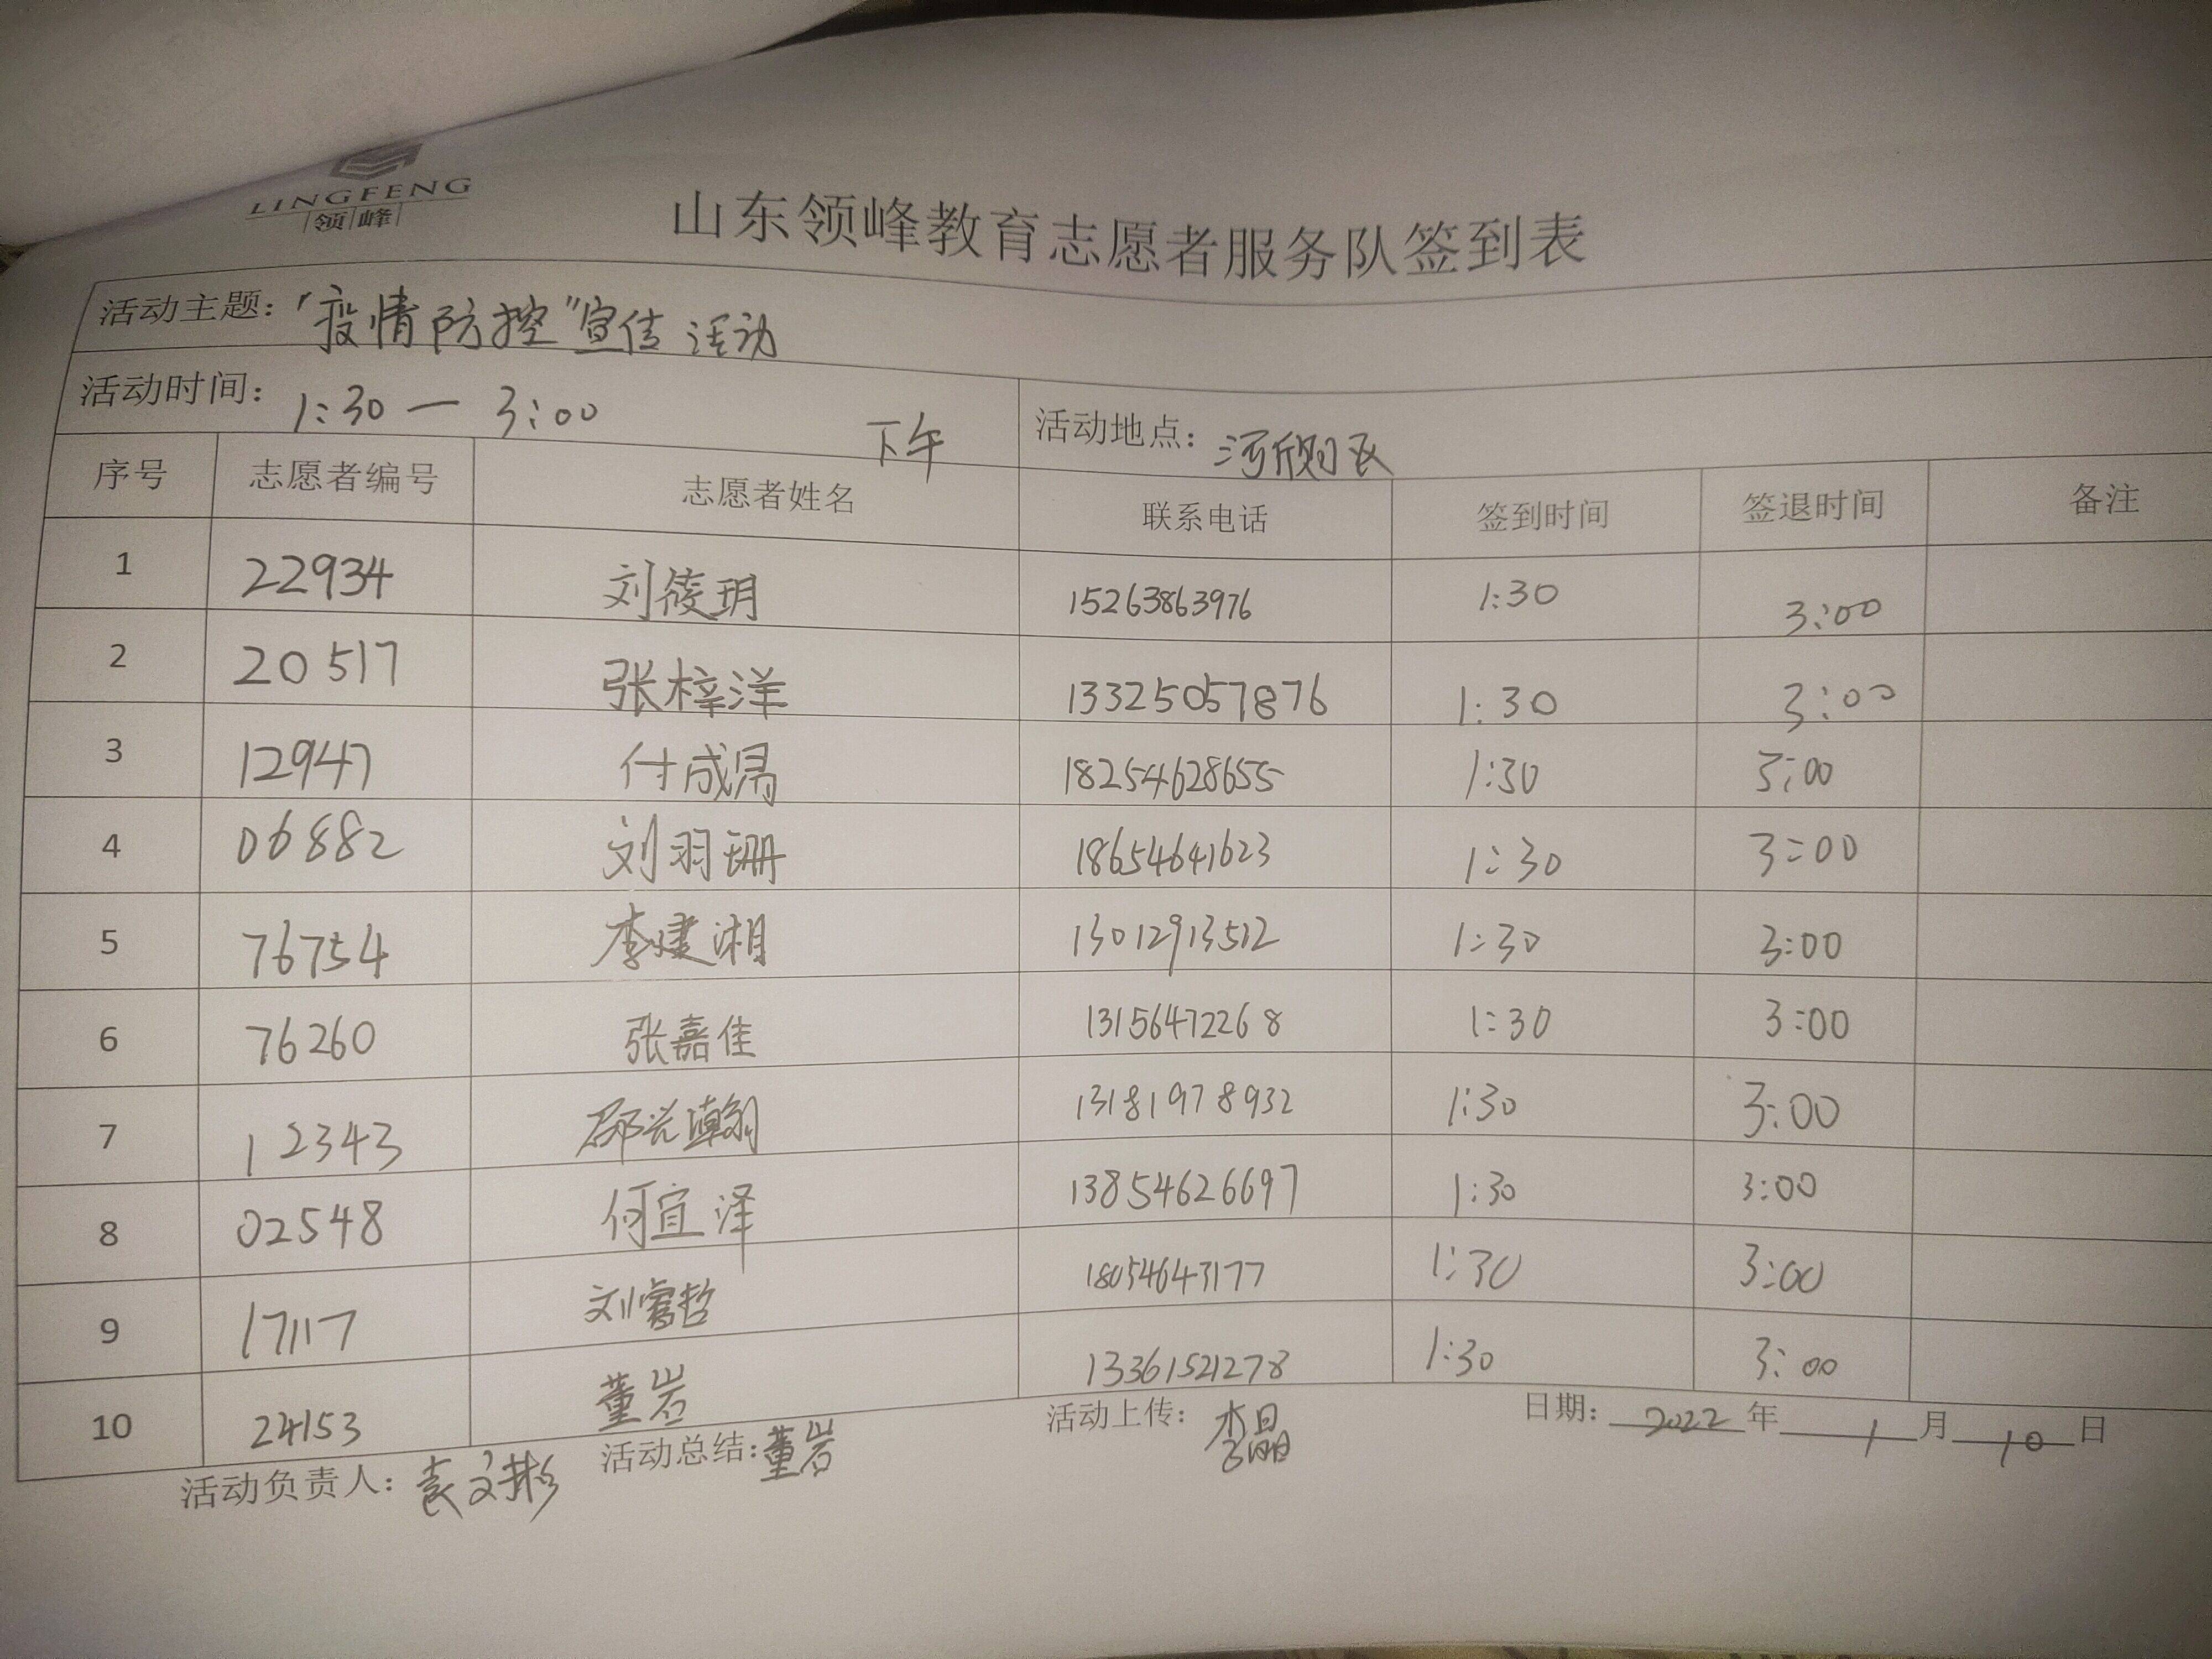 LINGFENG
领峰
山东领峰教育志愿者服务队签到表
活动主题：“疫情防控”宣传活动
活动时间： 1:30 — 3:00 下午 活动地点：
序号 志愿者编号 志愿者姓名 联系电话 签到时间 签退时间 备注
1 22934 刘筱玥 15263863976 1:30 3:00
2 20517 张梓洋 13325057876 1:30 3:00
3 12947 付成 18254628655 1:30 3:00
4 06882 刘羽珊 18654641623 1:30 3:00
5 76754 李建湘 13012913512 1:30 3:00
6 76260 张嘉佳 13156472268 1:30 3:00
7 12343 邵兴瀚 13181978932 1:30 3:00
8 02548 何宜泽 13854626697 1:30 3:00
9 17117 刘睿哲 18054643177 1:30 3:00
10 24153 董岩 13361521278 1:30 3:00
活动负责人：袁文彬 活动总结：董岩 活动上传：李晶 日期：2022年1月10日